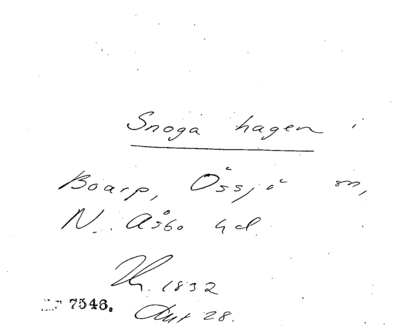 Snoga hagen i
Boarp, Össjö sn,
N. Åsbo hd.
1832
7546. Akt 28.